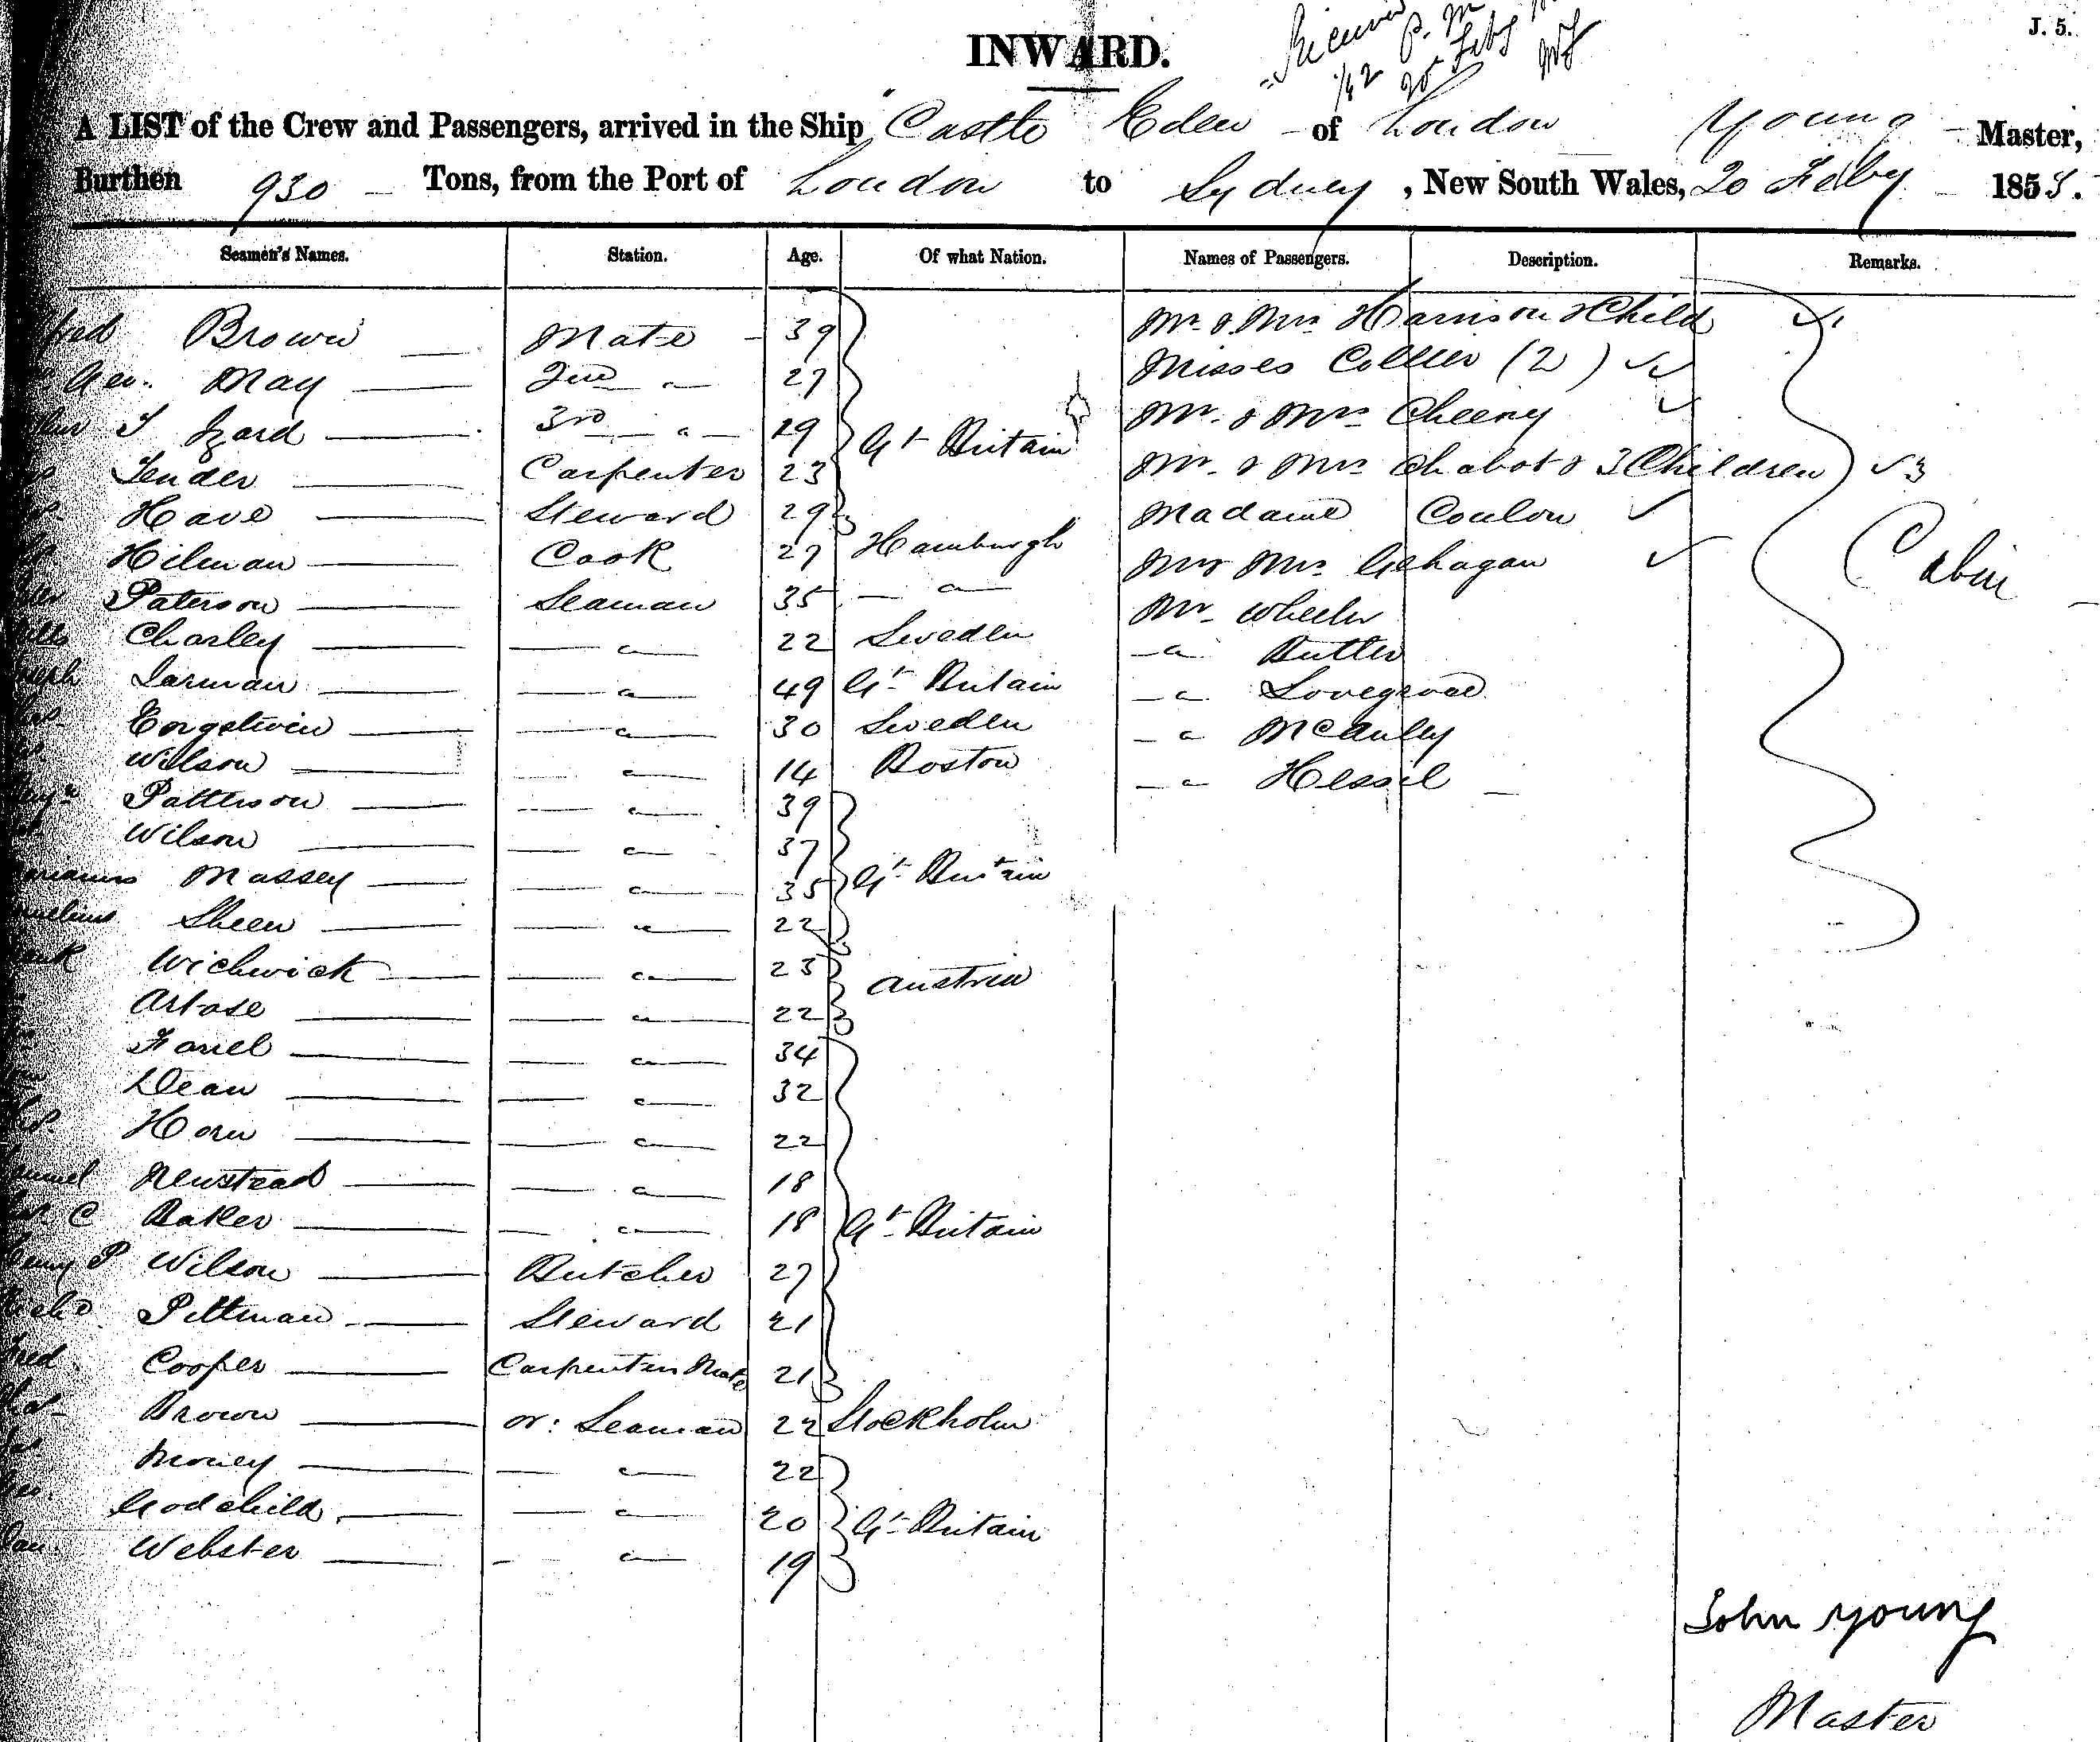 INWARD.
J. 5.
A LIST of the Crew and Passengers, arrived in the Ship Castle Eden of London Young Master,
Burthen 930 Tons, from the Port of London to Sydney, New South Wales, 20 Feby 1855.
Seamen's Names. Station. Age. Of what Nation. Names of Passengers. Description. Remarks.
Brown Mate 39 Mr. & Mrs Harrison & Child
Geo. May 2nd " 27 Misses Collier (2)
T Izard 3rd " 29 Gt Britain Mr. & Mrs Cheeny
Carpenter 23 Mr. & Mrs Chabot & 3 Children 3
Have Steward 29 Madame Coulon
Hilman Cook 27 Hamburgh Mr & Mrs Gehagan Cabin
Paterson Seaman 35 " Mr. Wheeler
Charley " 22 Sweden " Butler
Jarman " 49 Gt Britain " Lovegrove
" 30 Sweden " McAuley
Wilson " 14 Boston " Hessel
Patterson " 39
Wilson " 37
Massey " 35 Gt Britain
Sheen " 22
Wichwick " 23 Austria
Artose " 22
" 34
Dean " 32
Horn " 22
Newstead " 18
C Baker " 18 Gt Britain
P Wilson Butcher 27
Pittman Steward 21
Cooper Carpenters Mate 21
Brown or: Seaman 22 Stockholm
" 22
Godchild " 20 Gt Britain
Webster " 19
John Young
Master